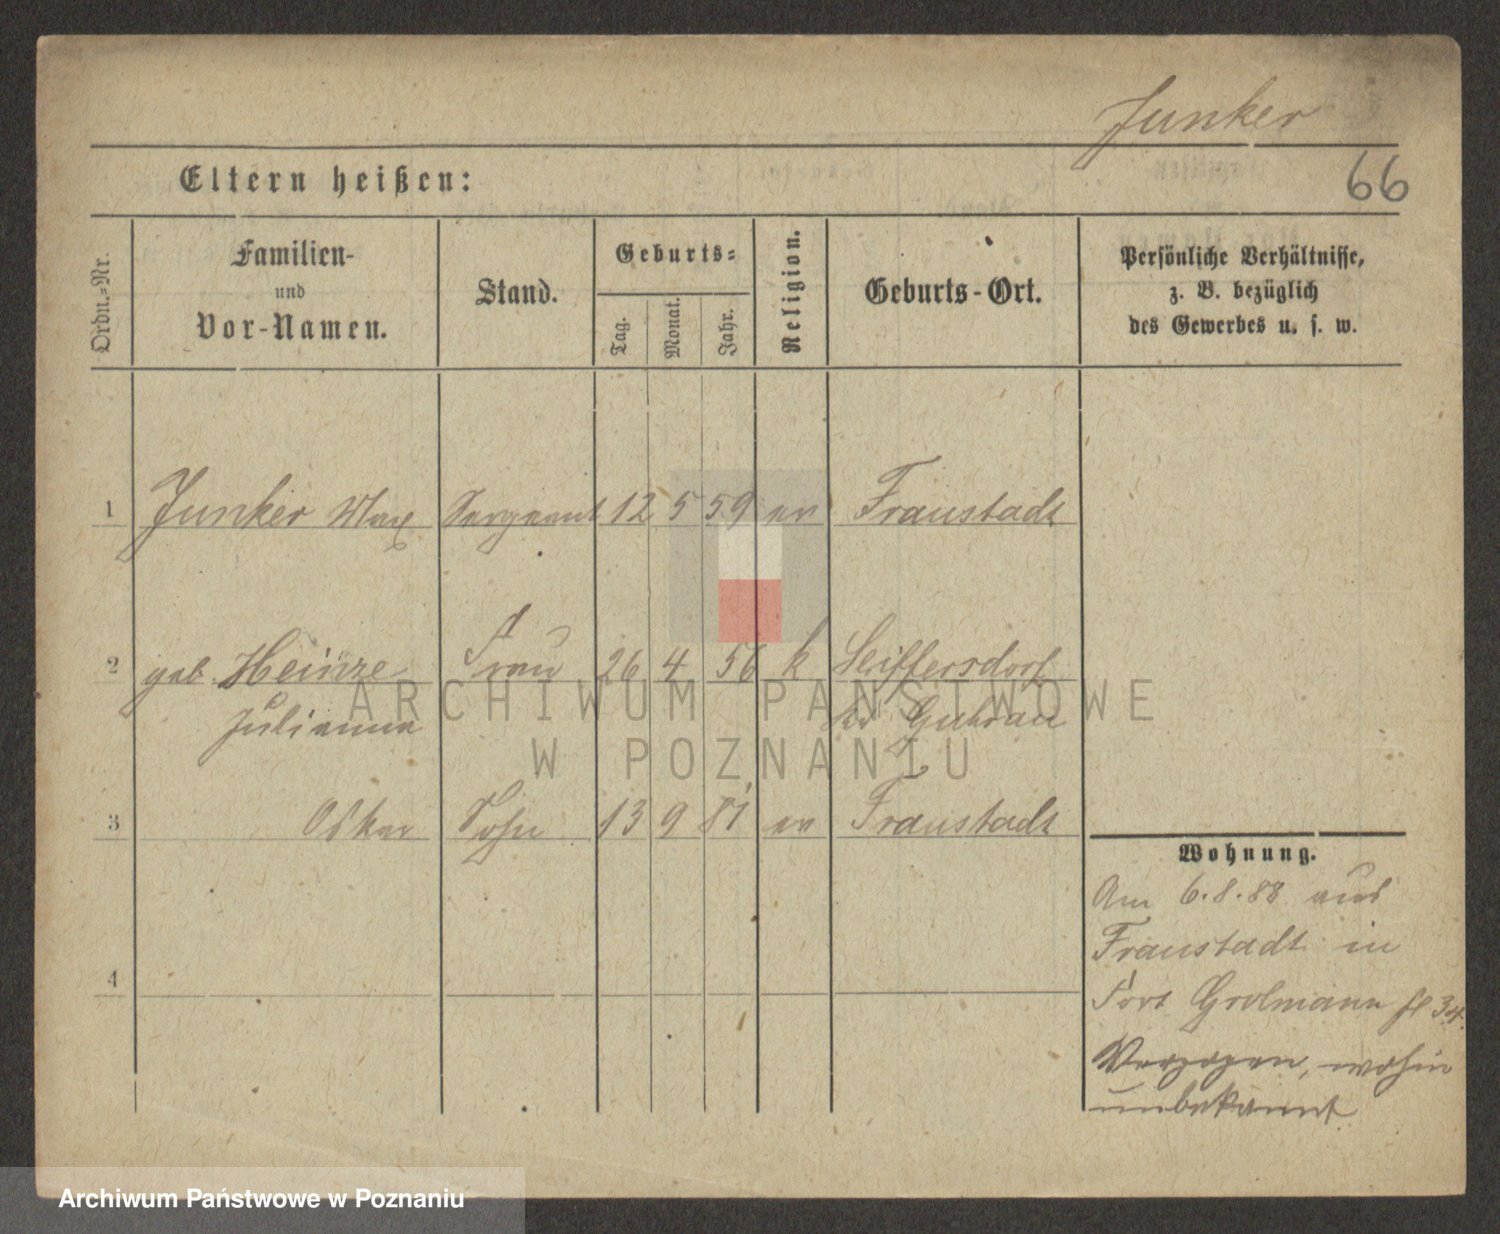 Junker
66
Eltern heißen:
Ordn.-Nr.
Familien-
und
Vor-Namen.
Stand.
Geburts-
Tag.
Monat.
Jahr.
Religion.
Geburts-Ort.
Persönliche Verhältnisse,
z. B. bezüglich
des Gewerbes u. s. w.
1 Junker Max Sergeant 12 5 59 ev Fraustadt
2 geb. Heinze Frau 26 4 56 k Seiffersdorf
Julianna Kr Guhrau
3 Oskar Sohn 13 9 81 ev Fraustadt
4
Wohnung.
Am 6.8.88 aus
Fraustadt in
Fort Grolmann
Verzogen, wohin
unbekannt
ARCHIWUM PAŃSTWOWE
W POZNANIU
Archiwum Państwowe w Poznaniu